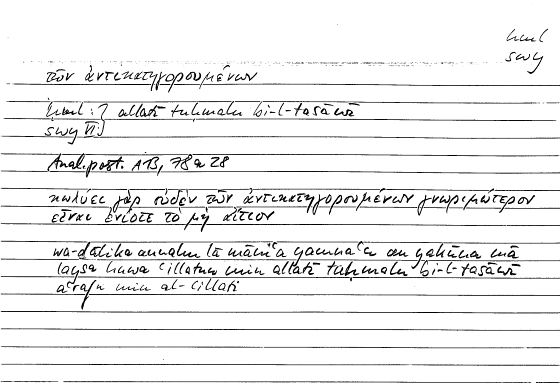 ḥml
swy
τῶν ἀντικατηγορουμένων
ḥml : ? allatī tuḥmalu bi-l-tasāwī
swy VI
Anal. post. A 13, 78 a 28
κωλύει γὰρ οὐδὲν τῶν ἀντικατηγορουμένων γνωριμώτερον
εἶναι ἐνίοτε τὸ μὴ αἴτιον
wa-ḏālika annahu lā māniʿa yamnaʿu an yakūna mā
laysa huwa ʿillatun min allatī tuḥmalu bi-l-tasāwī
aʿrafu min al-ʿillati